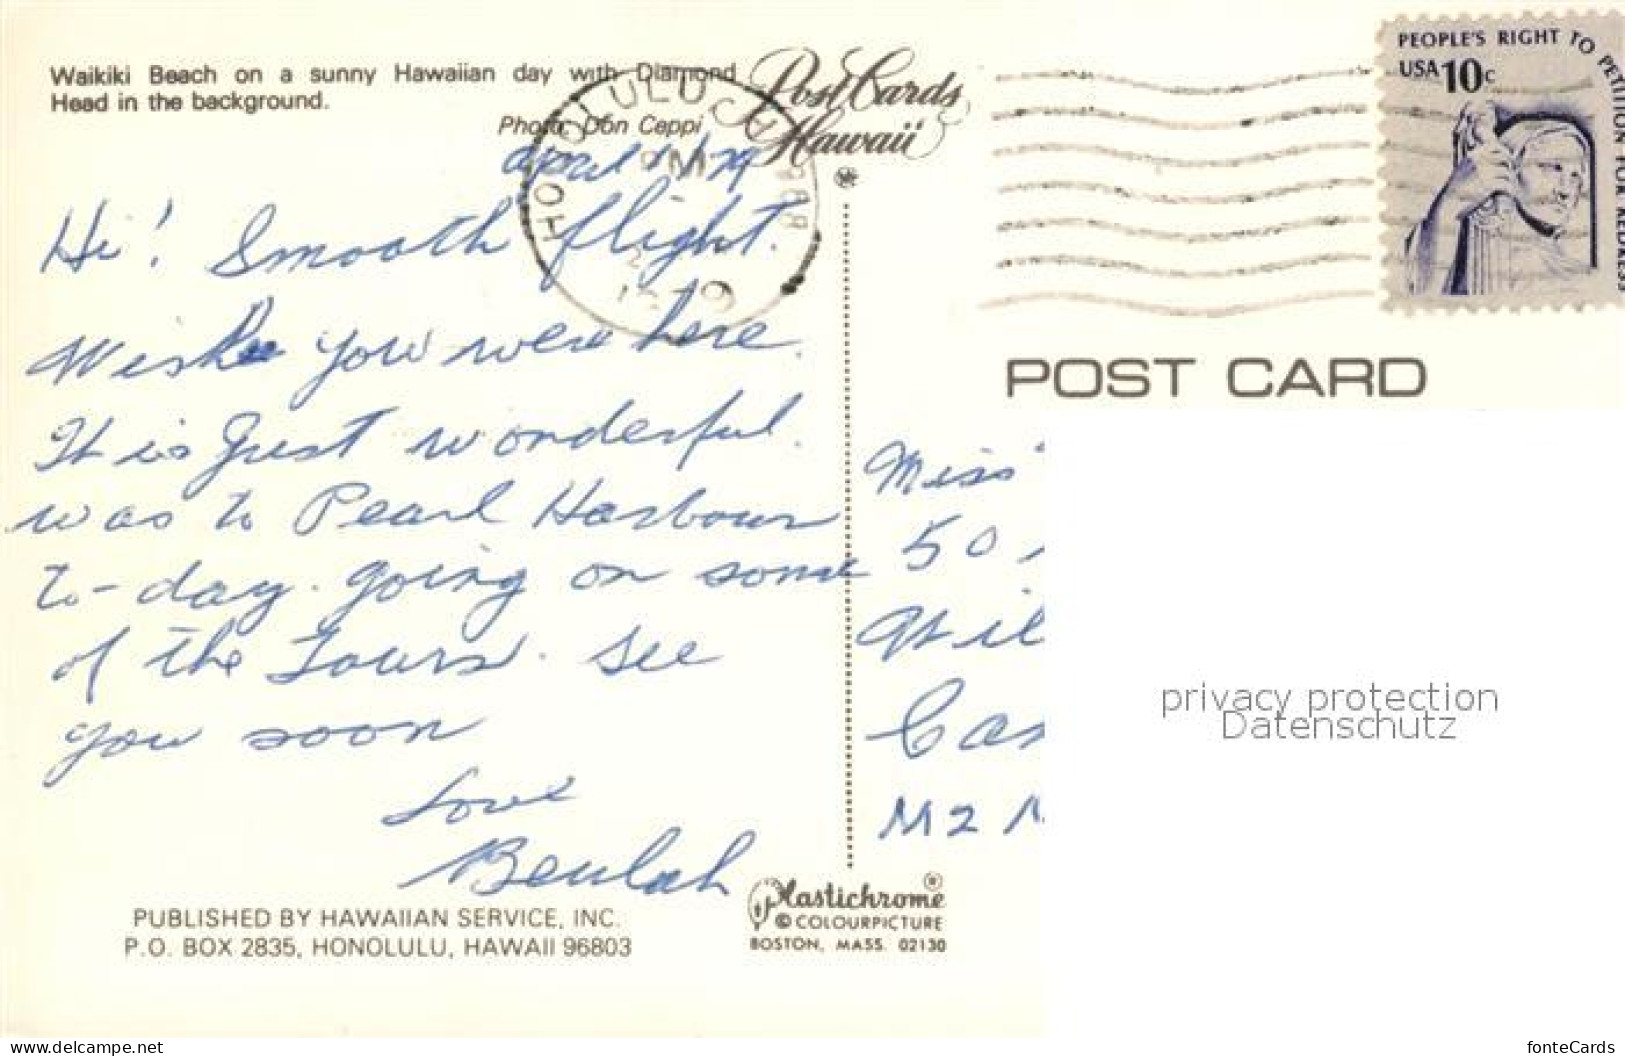 Waikiki Beach on a sunny Hawaiian day with Diamond
Head in the background.
Photo: Don Ceppi
Post Cards
Hawaii
PEOPLE'S RIGHT TO PETITION FOR REDRESS
USA 10c
HONOLULU
PM
April
Hi! Smooth flight.
Wish you were here.
It is just wonderful.
was to Pearl Harbour
to-day. going on some
of the Tours. See
you soon
Love
Beulah
POST CARD
Miss
50
Wil
Can
M2
privacy protection
Datenschutz
PUBLISHED BY HAWAIIAN SERVICE, INC.
P.O. BOX 2835, HONOLULU, HAWAII 96803
Plastichrome®
© COLOURPICTURE
BOSTON, MASS. 02130
www.delcampe.net
fonteCards